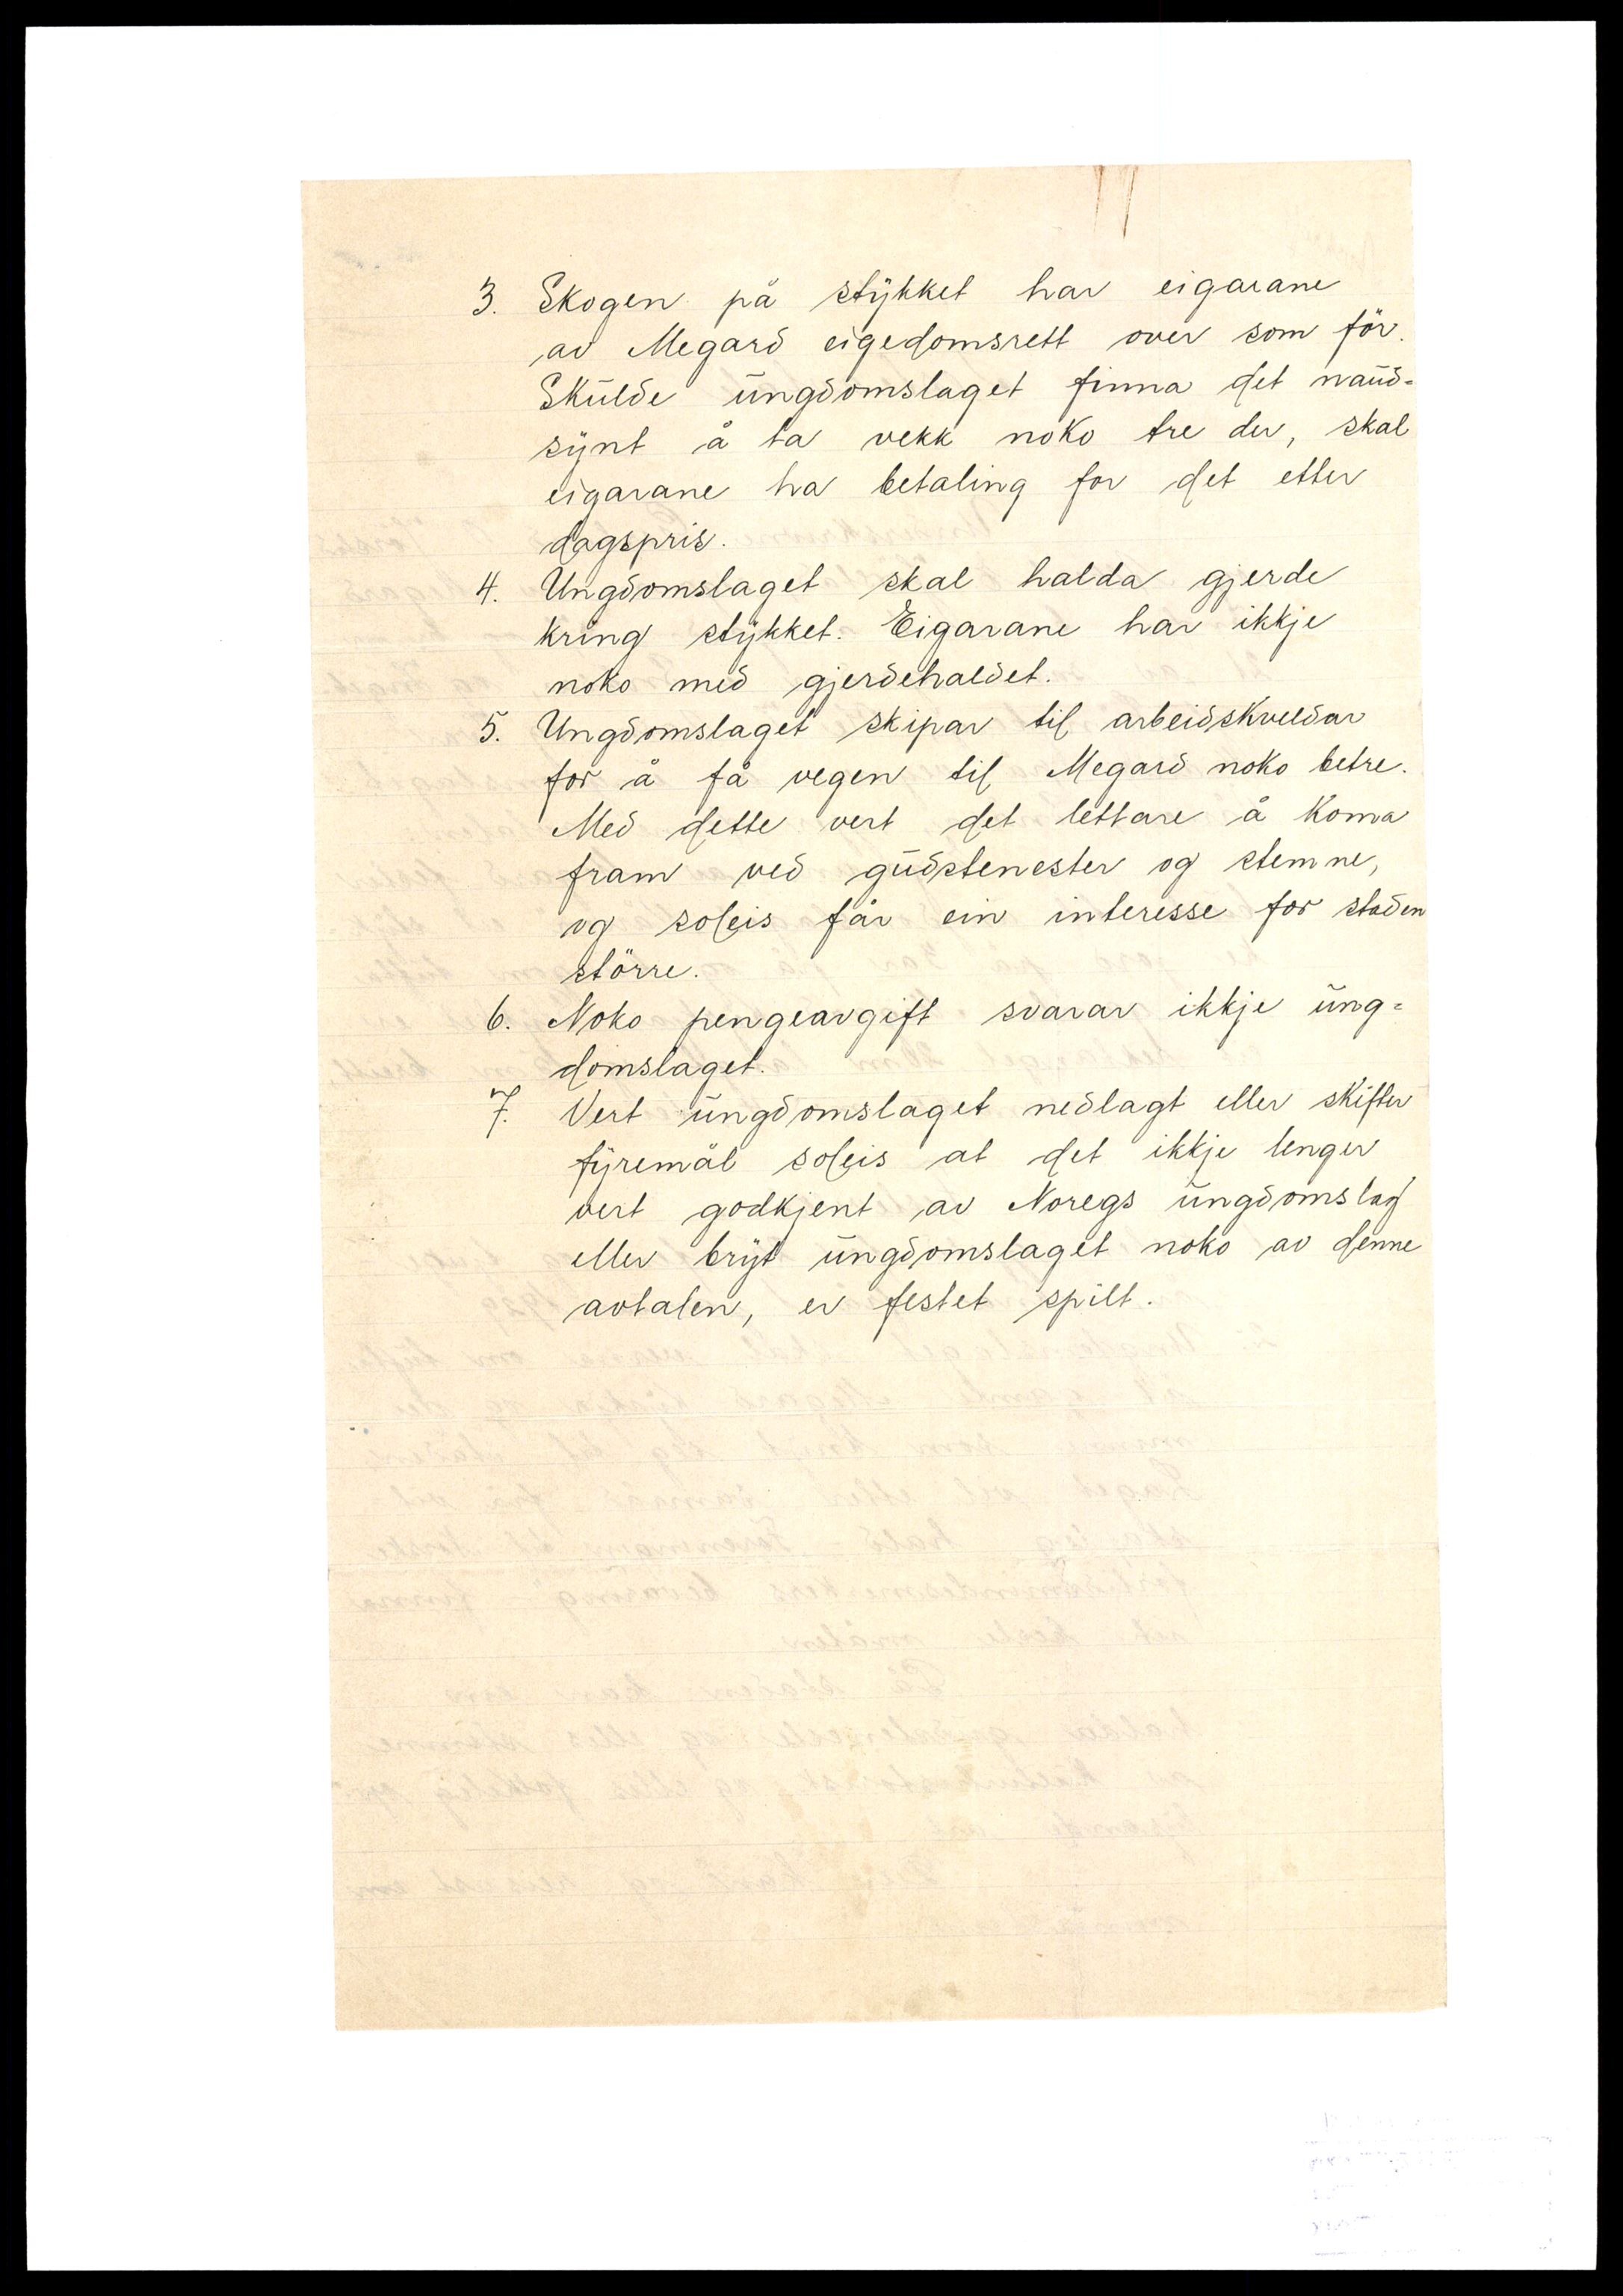 3. Skogen på stykket har eigarane
av Megard eigedomsrett over som för.
Skulde ungdomslaget finna det naud-
synt å ta vekk noko tre der, skal
eigarane ha betaling for det etter
dagspris.
4. Ungdomslaget skal halda gjerde
kring stykket. Eigarane har ikkje
noko med gjerdehaldet.
5. Ungdomslaget skipar til arbeidskveldar
for å få vegen til Megard noko betre.
Med dette vert det lettare å koma
fram ved gudstenester og stemne,
og soleis får ein interesse for staden
större.
6. Noko pengeavgift svarar ikkje ung-
domslaget.
7. Vert ungdomslaget nedlagt eller skifter
fyremål soleis at det ikkje lenger
vert godkjent av Noregs ungdomslag
eller bryt ungdomslaget noko av denne
avtalen, er festet spilt.